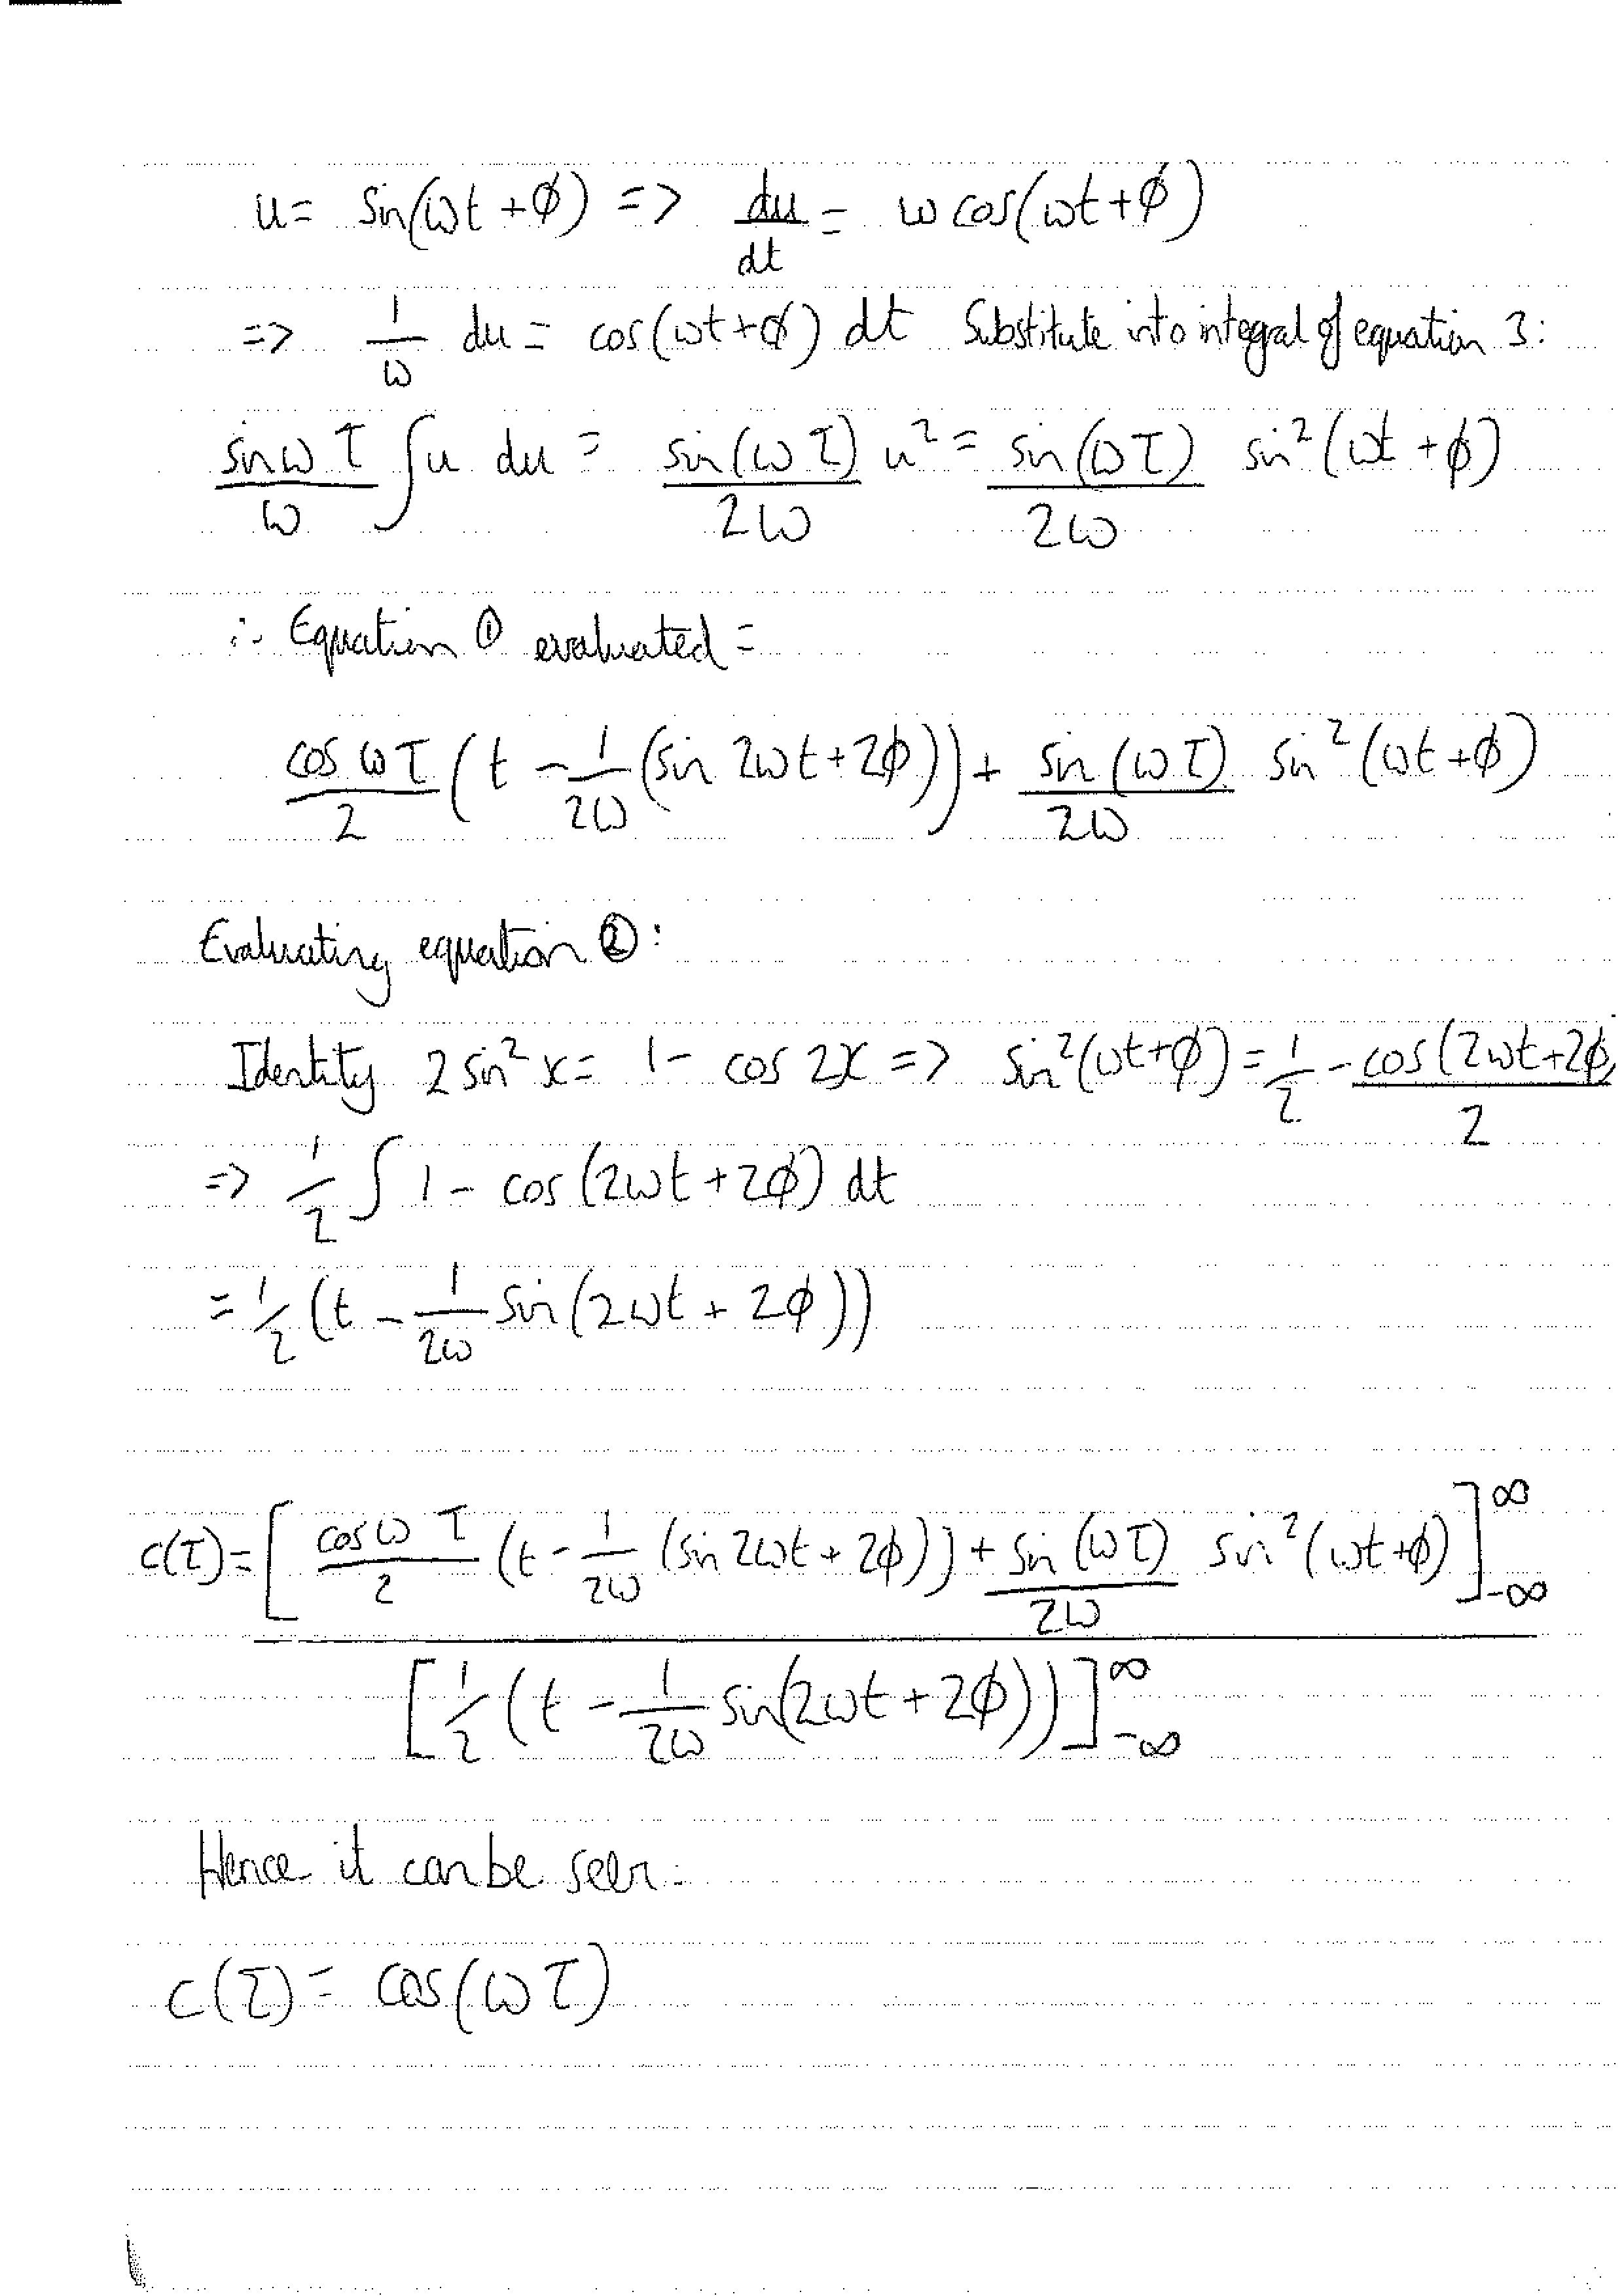 u = sin(ωt + ϕ) => du/dt = ω cos(ωt + ϕ)
=> 1/ω du = cos(ωt + ϕ) dt Substitute into integral of equation 3:
sin ω τ/ω ∫ u du = sin(ω τ)/2ω u² = sin(ω τ)/2ω sin²(ωt + ϕ)
∴ Equation ① evaluated =
cos ω τ/2 (t - 1/2ω (sin 2ωt + 2ϕ)) + sin(ω τ)/2ω sin²(ωt + ϕ)
Evaluating equation ②:
Identity 2 sin² x = 1 - cos 2x => sin²(ωt + ϕ) = 1/2 - cos(2ωt + 2ϕ)/2
=> 1/2 ∫ 1 - cos(2ωt + 2ϕ) dt
= 1/2 (t - 1/2ω sin(2ωt + 2ϕ))
c(τ) = [cos ω τ/2 (t - 1/2ω (sin 2ωt + 2ϕ)) + sin(ω τ)/2ω sin²(ωt + ϕ)]^∞_-∞
[1/2 (t - 1/2ω sin(2ωt + 2ϕ))]^∞_-∞
Hence it can be seen:
c(τ) = cos(ω τ)